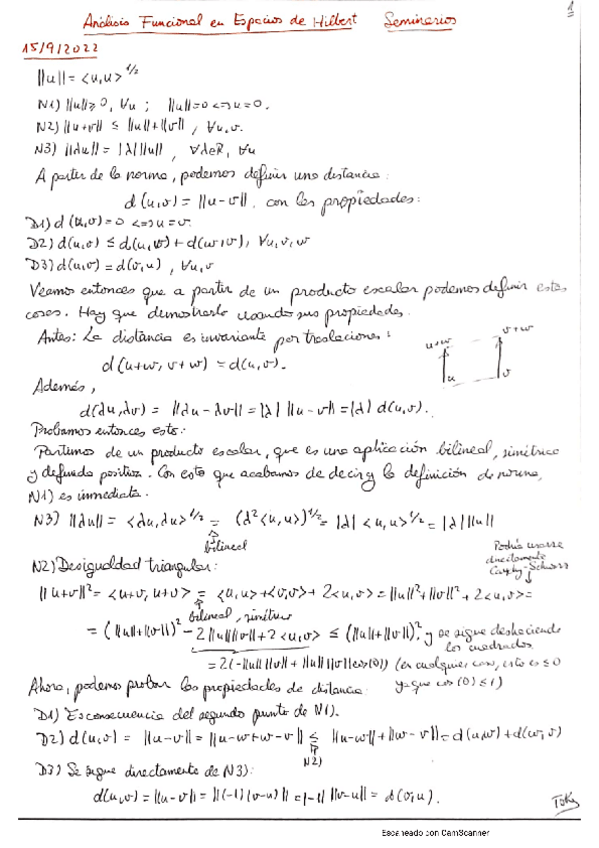 Análisis Funcional en Espacios de Hilbert Seminarios 1
15/9/2022
||u|| = <u,u>^1/2
N1) ||u|| ≥ 0, ∀u ; ||u||=0 <=> u=0.
N2) ||u+v|| ≤ ||u||+||v||, ∀u,v.
N3) ||λu|| = |λ| ||u||, ∀λ∈R, ∀u
A partir de la norma, podemos definir una distancia:
d(u,v) = ||u-v||. con las propiedades:
D1) d(u,v)=0 <=> u=v.
D2) d(u,v) ≤ d(u,w) + d(w,v), ∀u,v,w
D3) d(u,v) = d(v,u), ∀u,v
Veamos entonces que a partir de un producto escalar podemos definir estas
cosas. Hay que demostrarlo usando sus propiedades.
Antes: La distancia es invariante por traslaciones:
d(u+w, v+w) = d(u,v).
u+w v+w
u v
Además,
d(λu,λv) = ||λu-λv|| = |λ| ||u-v|| = |λ| d(u,v).
Probamos entonces esto:
Partimos de un producto escalar, que es una aplicación bilineal, simétrica
y definida positiva. Con esto que acabamos de decir y la definición de norma,
N1) es inmediata.
N3) ||λu|| = <λu,λu>^1/2 = (λ²<u,u>)^1/2 = |λ| <u,u>^1/2 = |λ| ||u||
bilineal
N2) Desigualdad triangular:
Podría usarse
directamente
Cauchy-Schwarz
||u+v||² = <u+v, u+v> = <u,u>+<v,v>+2<u,v> = ||u||²+||v||²+2<u,v> =
bilineal, simétrico
= (||u||+||v||)² - 2||u||||v||+2<u,v> ≤ (||u||+||v||)², y se sigue deshaciendo
los cuadrados
=2(-||u||||v||+||u||||v||cos(θ)) (en cualquier caso, esto es ≤0
ya que cos(θ) ≤ 1)
Ahora, podemos probar las propiedades de distancia:
D1) Es consecuencia del segundo punto de N1).
D2) d(u,v) = ||u-v|| = ||u-w+w-v|| ≤ ||u-w||+||w-v|| = d(u,w)+d(w,v)
N2)
D3) Se sigue directamente de N3):
d(u,v) = ||u-v|| = ||(-1)(v-u)|| = |-1| ||v-u|| = d(v,u).
Escaneado con CamScanner